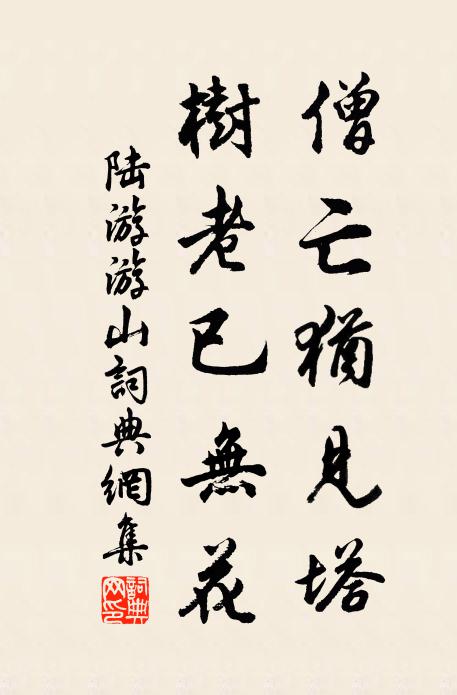 僧亡猶見塔
樹老已無花
陆游游山詞典網集
詞典网印